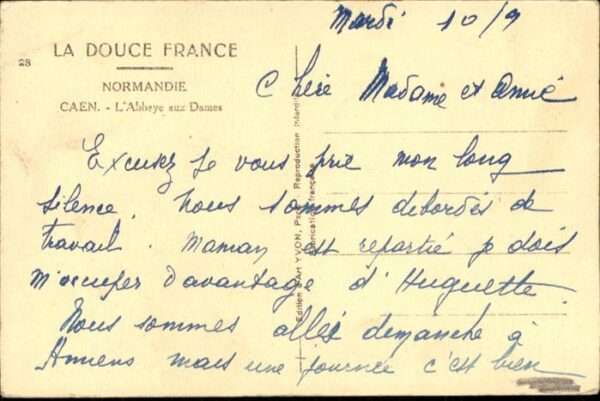 Mardi 10/9
28
LA DOUCE FRANCE
NORMANDIE
CAEN. - L'Abbaye aux Dames
Chère Madame et Amie
Excusez je vous prie mon long
silence. Nous sommes debordés de
travail. Maman est repartie je dois
m'occuper davantage d'Huguette.
Nous sommes allés demanche à
Amiens mais une journée c'est bien
Edition d'Art YVON, Reproduction
Fabrication française